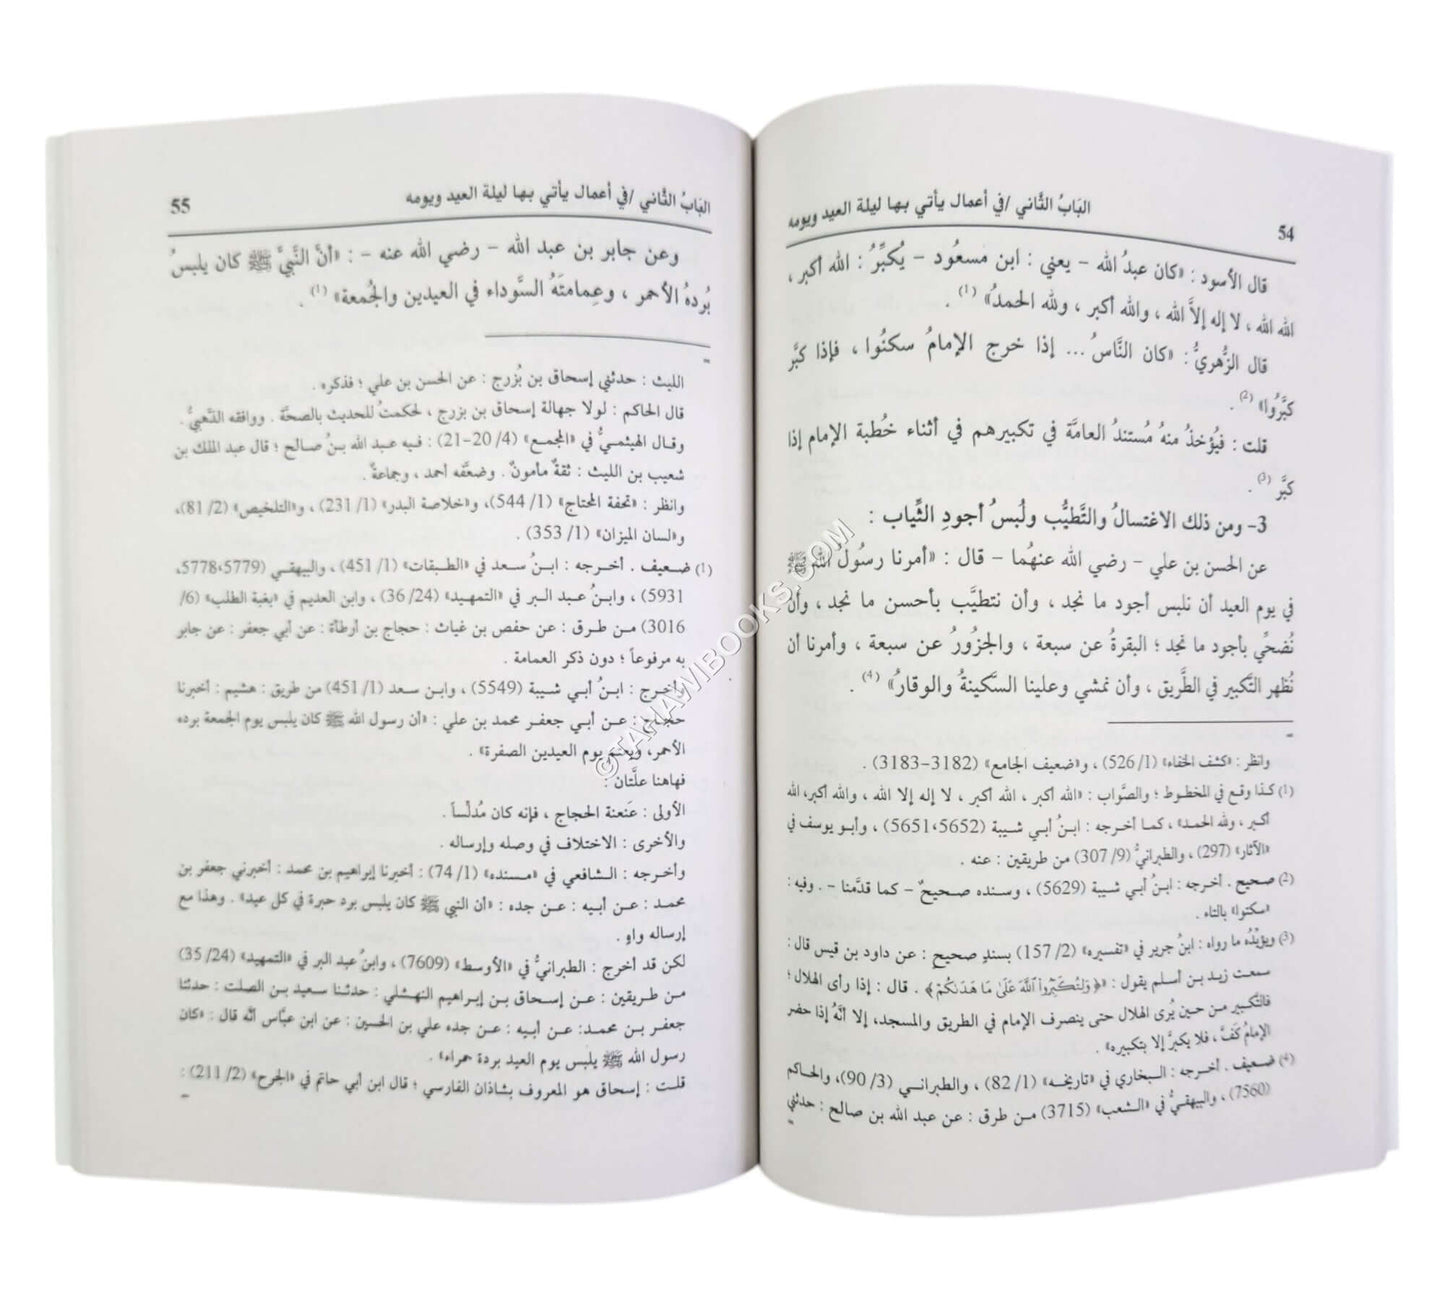 54
البَابُ الثَّاني /في أعمال يأتي بها ليلة العيد ويومه
قال الأسود : «كان عبدُ الله - يعني : ابن مسعُود - يُكبِّرُ : الله أكبر ،
الله الله ، لا إله إلاَّ الله ، والله أكبر ، ولله الحمدُ» (1) .
قال الزُّهريُّ : «كان النَّاسُ ... إذا خرج الإمامُ سكتُوا ، فإذا كبَّر
كبَّرُوا» (2) .
قلت : فيُؤخذُ منهُ مُستندُ العامَّة في تكبيرهم في أثناء خُطبة الإمام إذا
كبَّر (3) .
3- ومن ذلك الاغتسالُ والتَّطيُّب ولُبسُ أجودِ الثِّياب :
عن الحسن بن علي - رضي الله عنهُما - قال : «أمرنا رسُول الله ﷺ
في يوم العيد أن نلبس أجود ما نجد ، وأن نتطيَّب بأحسن ما نجد ، وأن
نُضحِّي بأجود ما نجد ؛ البقرةُ عن سبعة ، والجزُورُ عن سبعة ، وأمرنا أن
نُظهر التَّكبير في الطَّريق ، وأن نمشي وعلينا السَّكينةُ والوقارُ» (4) .
=
وانظر : «كشف الخفاء» (1/ 526) ، و«ضعيف الجامع» (3182-3183) .
(1) كذا وقع في المخطوط ؛ والصَّواب : «الله أكبر ، الله أكبر ، لا إله إلا الله ، والله أكبر، الله
أكبر ، ولله الحمد» ، كما أخرجه : ابنُ أبي شيبة (5651،5652) ، وأبو يوسف في
«الآثار» (297) ، والطبرانيُّ (9/ 307) من طريقين : عنه .
(2) صحيح . أخرجه : ابنُ أبي شيبة (5629) ، وسنده صحيحٌ - كما قدَّمنا - . وفيه :
«سكتوا» بالتاء .
(3) ويؤيّدُه ما رواه : ابنُ جرير في «تفسيره» (2/ 157) بسندٍ صحيح : عن داود بن قيس قال :
سمعت زيد بن أسلم يقول : «﴿وَلِتُكَبِّرُواْ ٱللَّهَ عَلَىٰ مَا هَدَىٰكُمْ﴾ . قال : إذا رأى الهلال ؛
فالتَّكبير من حين يُرى الهلال حتى ينصرف الإمام في الطريق والمسجد، إلا أنَّهُ إذا حضر
الإمامُ كَفَّ ، فلا يكبرُ إلا بتكبيره» .
(4) ضعيف . أخرجه : البخاري في «تاريخه» (1/ 82) ، والطبراني (3/ 90)، والحاكم
(7560) ، والبيهقيُّ في «الشعب» (3715) من طرق : عن عبد الله بن صالح : حدثني
=
55
البَابُ الثَّاني /في أعمال يأتي بها ليلة العيد ويومه
وعن جابر بن عبد الله - رضي الله عنه - : «أنَّ النَّبيَّ ﷺ كان يلبسُ
بُردهُ الأحمر ، وعِمامتَهُ السَّوداء في العيدين والجُمعة» (1) .
=
الليث : حدثني إسحاق بن بُزرج : عن الحسن بن علي ؛ فذكره .
قال الحاكم : لولا جهالة إسحاق بن بزرج ، لحكمتُ للحديث بالصحَّة . ووافقه الذَّهبيُّ .
وقال الهيثميُّ في «المجمع» (4/ 20-21) : فيه عبد الله بنُ صالح ؛ قال عبد الملك بن
شعيب بن الليث : ثقةٌ مأمونٌ . وضعَّفه أحمد ، وجماعةٌ .
وانظر : «تحفة المحتاج» (1/ 544)، و«خلاصة البدر» (1/ 231) ، و«التلخيص» (2/ 81)،
و«لسان الميزان» (1/ 353) .
(1) ضعيف . أخرجه : ابنُ سعد في «الطبقات» (1/ 451) ، والبيهقي (5778،5779،
5931) ، وابنُ عبد البر في «التمهيد» (24/ 36) ، وابن العديم في «بغية الطلب» (6/
3016) من طرق : عن حفص بن غياث : حجاج بن أرطأة : عن أبي جعفر : عن جابر
به مرفوعاً ؛ دون ذكر العمامة .
وأخرج : ابنُ أبي شيبة (5549) ، وابن سعد (1/ 451) من طريق : هشيم : أخبرنا
حجاج : عن أبي جعفر محمد بن علي : «أن رسول الله ﷺ كان يلبس يوم الجمعة برده
الأحمر، ويعتم يوم العيدين الصفرة» .
فهاهنا علَّتان :
الأولى : عَنعنة الحجاج ، فإنه كان مُدلّساً .
والأخرى : الاختلاف في وصله وإرساله .
وأخرجه : الشافعي في «مسنده» (1/ 74) : أخبرنا إبراهيم بن محمد : أخبرني جعفر بن
محمد : عن أبيه : عن جده : «أن النبي ﷺ كان يلبس برد حبرة في كل عيد» . وهذا مع
إرساله واهٍ .
لكن قد أخرج : الطبرانيُّ في «الأوسط» (7609) ، وابنُ عبد البر في «التمهيد» (24/ 35)
من طريقين : عن إسحاق بن إبراهيم النهشلي : حدثنا سعيد بن الصلت : حدثنا
جعفر بن محمد: عن أبيه : عن جده علي بن الحسين : عن ابن عبَّاس أنَّه قال : «كان
رسول الله ﷺ يلبس يوم العيد بردة حمراء» .
قلت : إسحاق هو المعروف بشاذان الفارسي ؛ قال ابن أبي حاتم في «الجرح» (2/ 211) :
=
©TAHAWIBOOKS.COM